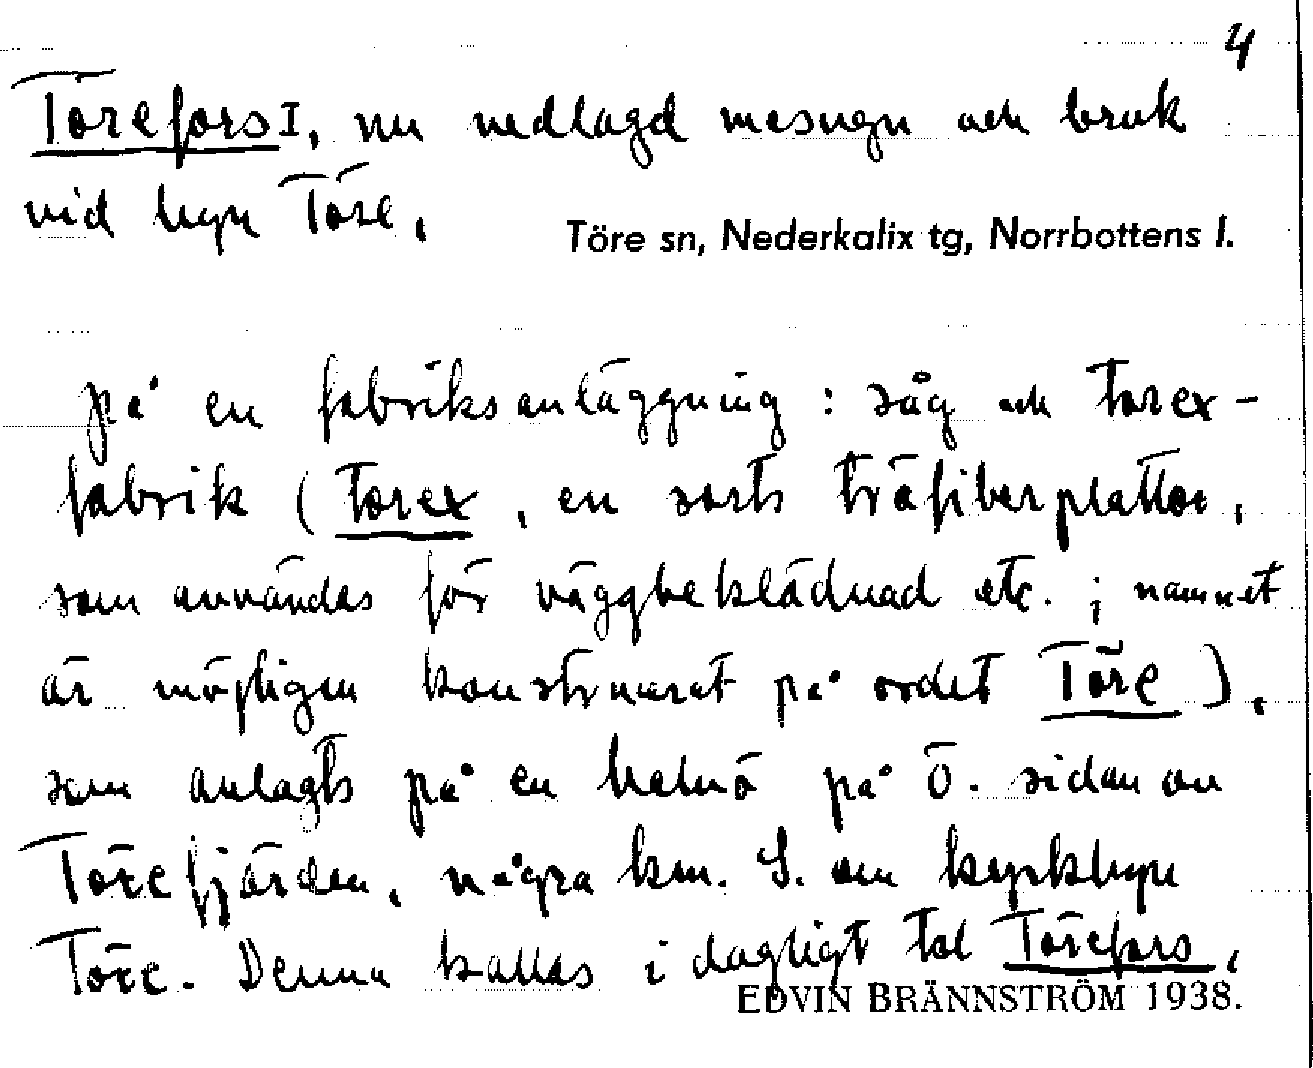 4
Törefors I, nu nedlagd masugn och bruk
vid byn Töre,
Töre sn, Nederkalix tg, Norrbottens l.
på en fabriksanläggning: såg och torex-
fabrik (torex, en sorts träfiberplattor,
som användes för väggbeklädnad etc.; namnet
är möjligen konstruerat på ordet Töre),
som anlagts på en halvö på Ö. sidan av
Törefjärden, några km. S. om kyrkbyn
Töre. Denna kallas i dagligt tal Törefors,
EDVIN BRÄNNSTRÖM 1938.